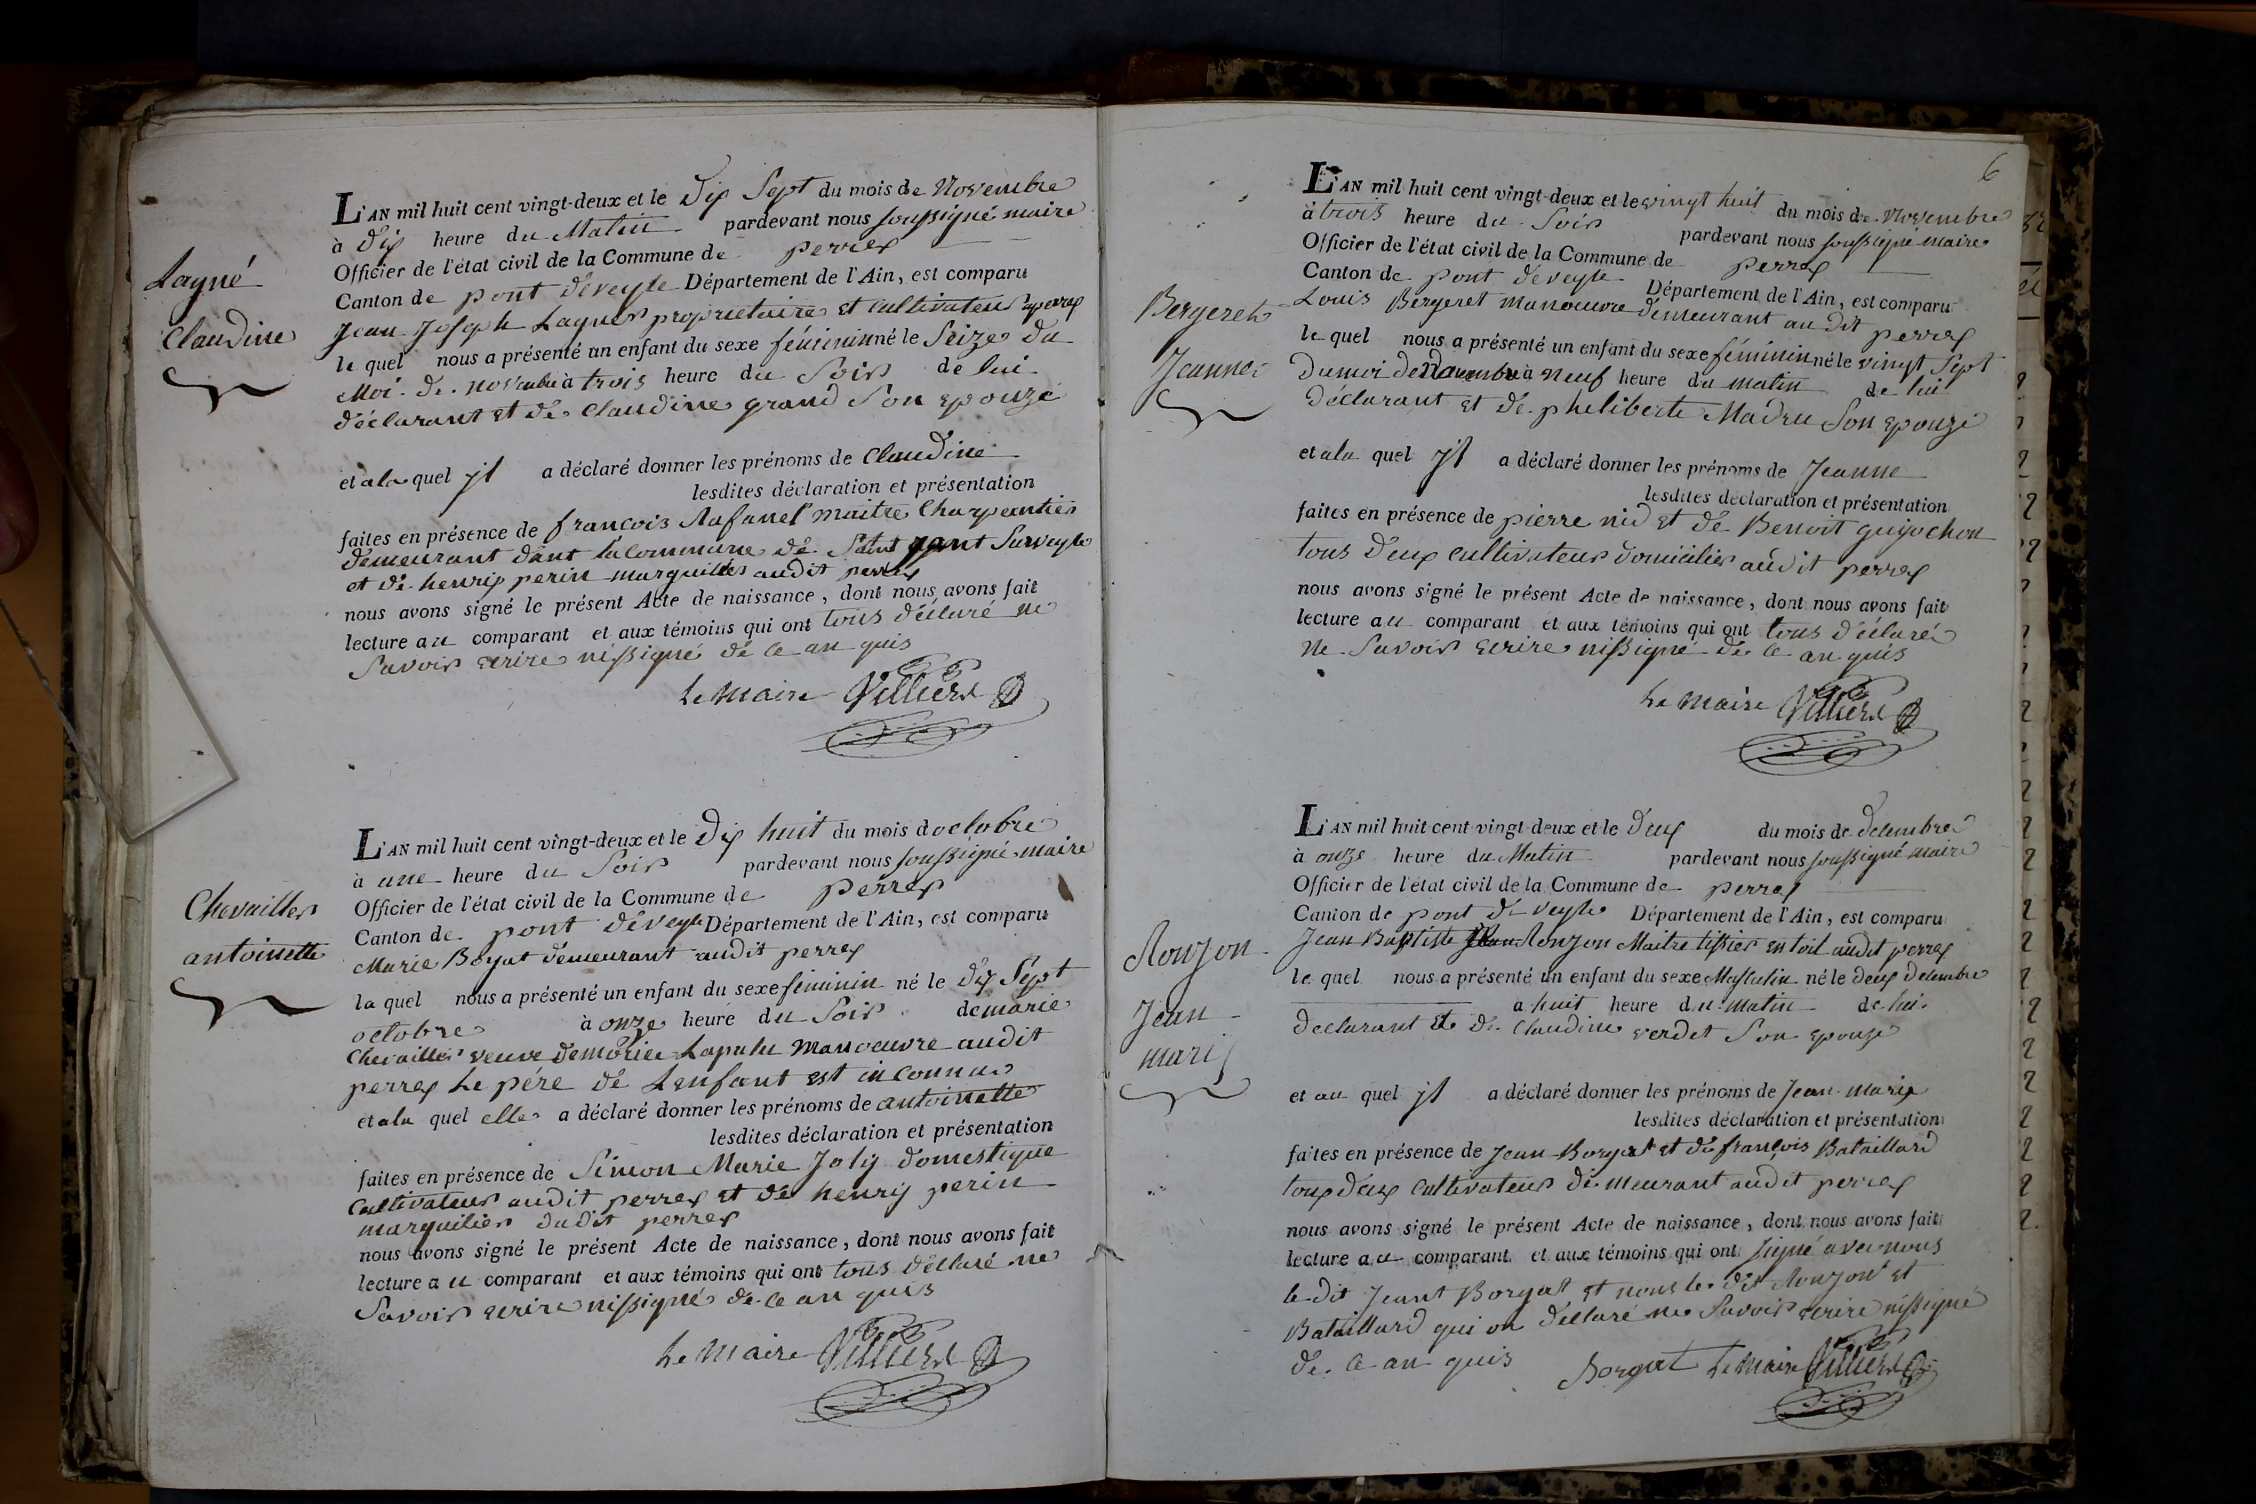 Layné
Claudine
L'AN mil huit cent vingt-deux et le Dix Sept du mois de Novembre
à dix heure du Matin pardevant nous soussigné maire
Officier de l'état civil de la Commune de perrex
Canton de pont deveyle Département de l'Ain, est comparu
Jean Joseph Layné proprietaire et cultivateur a perrex
le quel nous a présenté un enfant du sexe féminin né le Seize du
Moi de novembre à trois heure du Soir de lui
déclarant et de Claudine grand Son epouze
et a la quel jl a déclaré donner les prénoms de Claudine
lesdites déclaration et présentation
faites en présence de francois Rafanel maitre Charpentier
demeurant dant la commune de Saint Surveyle
et de henrij perin marguillier audit perrex
nous avons signé le présent Acte de naissance, dont nous avons fait
lecture au comparant et aux témoins qui ont tous déclaré ne
Savoir ecrire nissigné de ce an quis
Le maire Villierd
Chevaillier
antoinette
L'AN mil huit cent vingt-deux et le Dix huit du mois doctobre
à une heure du Soir pardevant nous soussigné maire
Officier de l'état civil de la Commune de perrex
Canton de pont deveyle Département de l'Ain, est comparu
Marie Boyat demeurant audit perrex
la quel nous a présenté un enfant du sexe féminin né le dix Sept
octobre à onze heure du Soir de marie
Chevaillier veuve de Laputu Manoeuvre audit
perrex Le pére de Lenfant est inconnu
et a la quel elle a déclaré donner les prénoms de antoinette
lesdites déclaration et présentation
faites en présence de Simon Marie Joly domestique
Cultivateur audit perrex et de henrij perin
marguilier dudit perrex
nous avons signé le présent Acte de naissance, dont nous avons fait
lecture au comparant et aux témoins qui ont tous déclaré ne
Savoir ecrire nissigné de ce an quis
Le Maire Villierd
6
Bergeret
Jeanne
L'AN mil huit cent vingt-deux et le vingt huit du mois de Novembre
à trois heure du Soir pardevant nous soussigné maire
Officier de l'état civil de la Commune de perrex
Canton de pont deveyle Département de l'Ain, est comparu
Louis Bergeret manoeuvre demeurant au dit perrex
le quel nous a présenté un enfant du sexe féminin né le vingt Sept
du moi de Novembre à neuf heure du matin de lui
déclarant et de pheliberte Madru Son epouze
et a la quel jl a déclaré donner les prénoms de Jeanne
lesdites déclaration et présentation
faites en présence de pierre nid et de Benoit guijochon
tous deux cultivateur domicilier audit perrex
nous avons signé le présent Acte de naissance, dont nous avons fait
lecture au comparant et aux témoins qui ont tous déclaré
ne Savoir ecrire nissigné de ce an quis
Le maire Villierd
Ronjon
Jean
marij
L'AN mil huit cent vingt-deux et le deux du mois de decembre
à onze heure du Matin pardevant nous soussigné maire
Officier de l'état civil de la Commune de perrex
Canton de pont de veyle Département de l'Ain, est comparu
Jean Baptiste Ronjon Maitre tissier en toil audit perrex
le quel nous a présenté un enfant du sexe Masculin né le deux decembre
à huit heure du matin de lui
declarant et de Claudine verdet Son epouze
et au quel jl a déclaré donner les prénoms de Jean marie
lesdites déclaration et présentation
faites en présence de Jean Borgat et de françois Bataillard
tous deux cultivateur demeurant audit perrex
nous avons signé le présent Acte de naissance, dont nous avons fait
lecture au comparant et aux témoins qui ont signé avec nous
le dit Jeant Borgat et nous les dit Ronjon et
Bataillard qui on déclaré ne Savoir ecrire nissigné
de ce an quis Borgat Le maire Villierd